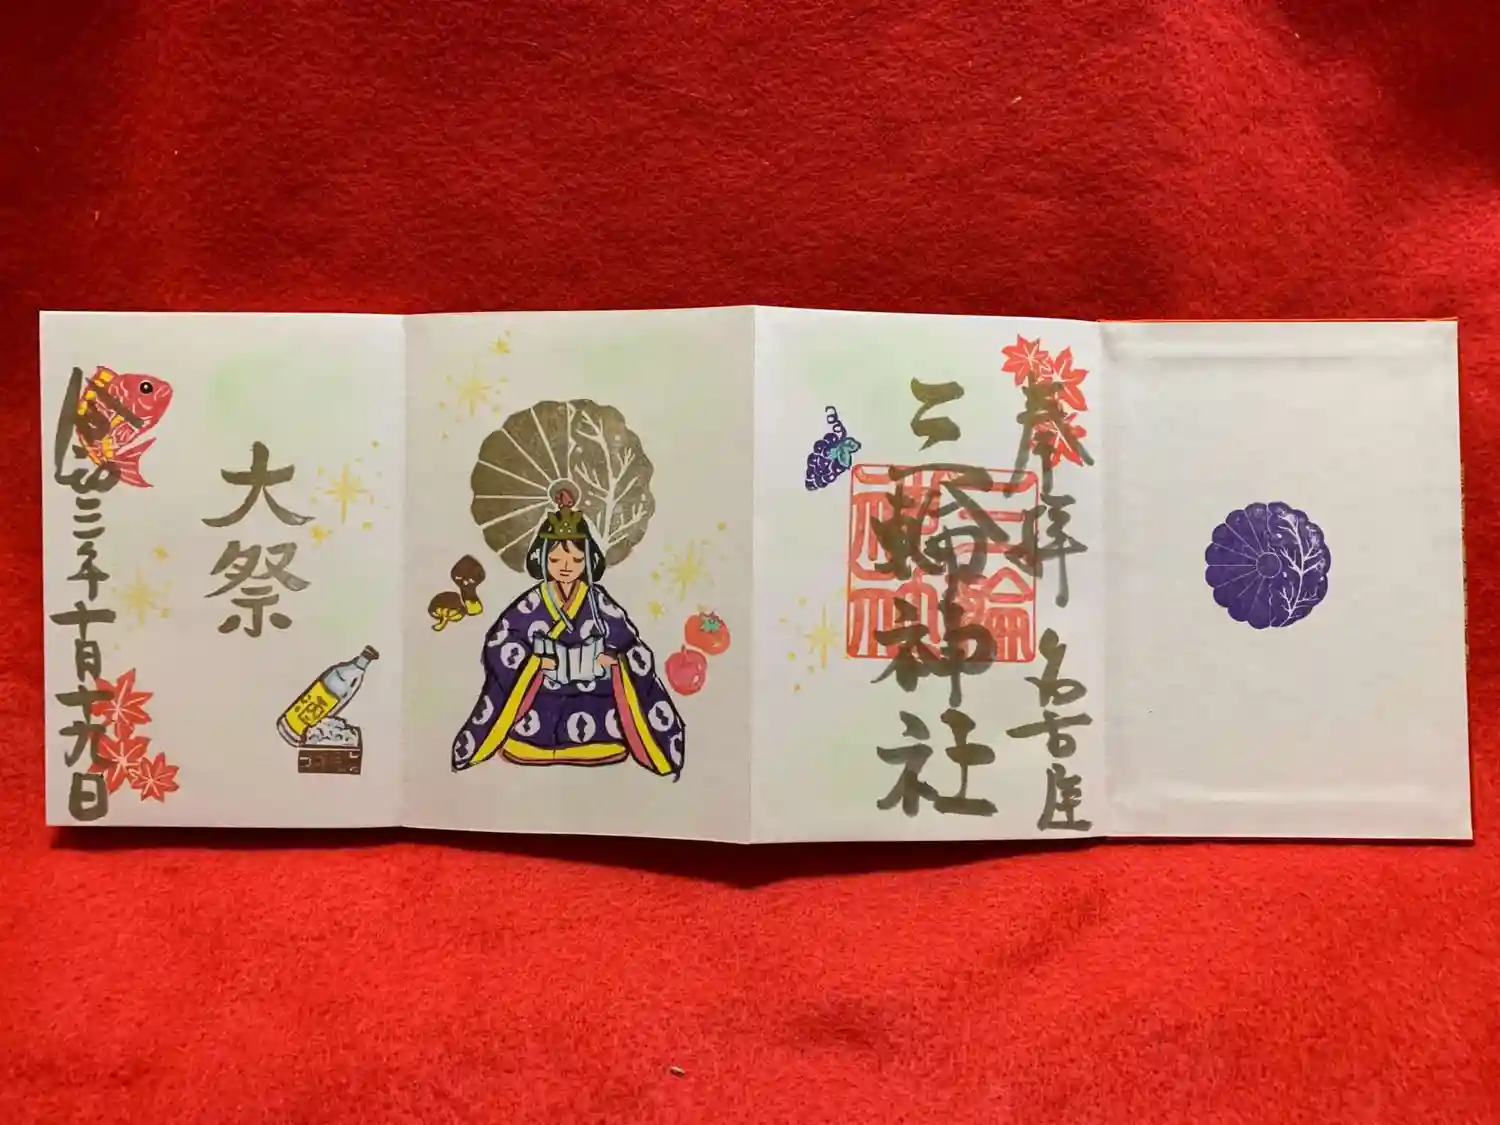 奉拝
名古屋
三輪神社
三輪神社
大祭
令和三年十月十九日